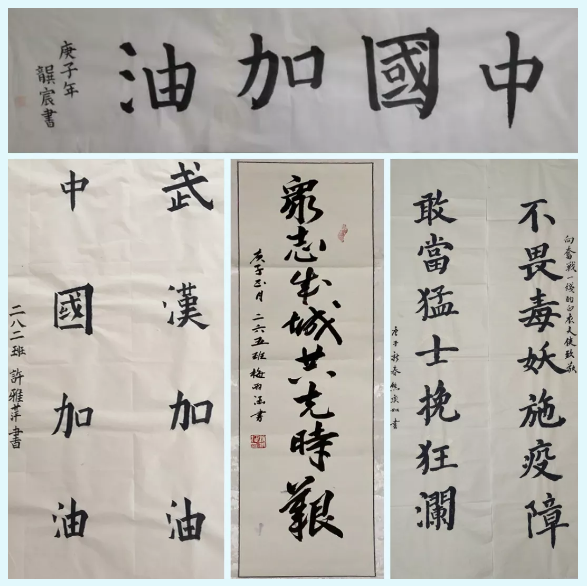 中國加油
庚子年
龔宸書
武漢加油
中國加油
二八二班 許雅萍書
眾志成城共克時艱
庚子正月 二六五班 梅羽涵書
向奮戰一線的白衣天使致敬
不畏毒妖施疫障
敢當猛士挽狂瀾
庚子新春
書